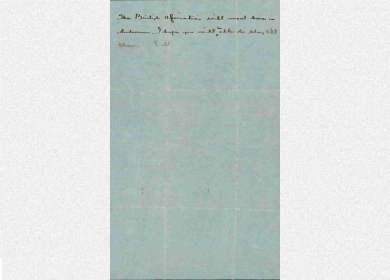 The British Association will meet here in
Autumn. I hope you will be able to stay till
then.